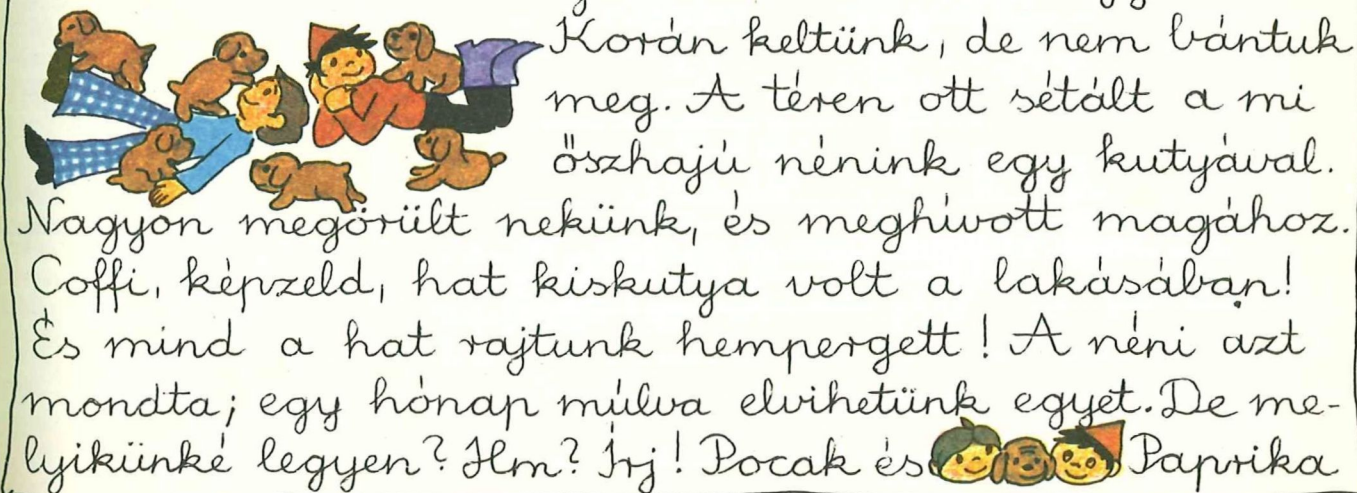 Korán keltünk, de nem bántuk
meg. A téren ott sétált a mi
őszhajú nénink egy kutyával.
Nagyon megörült nekünk, és meghívott magához.
Coffi, képzeld, hat kiskutya volt a lakásában!
És mind a hat rajtunk hempergett! A néni azt
mondta; egy hónap múlva elvihetünk egyet. De me-
lyikünké legyen? Hm? Írj! Pocak és Paprika